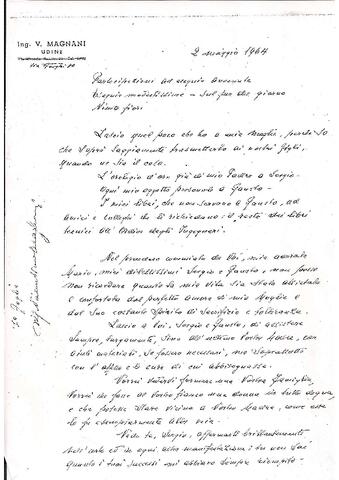 Ing. V. MAGNANI
UDINE
2 maggio 1964
Partecipazioni ad esequie avvenute
Esequie modestissime - sul far del giorno
Niente fiori
Lascio quel poco che ho a mia moglie, perché so
che saprà saggiamente trasmetterlo ai nostri figli,
quando ne sia il caso.
L'orologio d'oro già di mio Padre a Sergio -
Ogni mio oggetto personale a Gaurto -
I miei libri, che non servano a Gaurto, ad
amici e colleghi che li richiedano - il resto dei libri
tecnici all'Ordine degli Ingegneri.
Nel prendere comiato da Voi, mia adorata
Maria, miei dilettissimi Sergio e Gaurto, non posso
non ricordare quanto la mia vita sia stata allietata
e confortata dal perfetto amore di mia Moglie e
dal suo costante spirito di sacrificio e tolleranza.
Lascio a Voi, Sergio e Gaurto, di assistere
sempre, largamente, sino all'estremo Vostra Madre, con
aiuti materiali, se fossero necessari, ma soprattutto
con l'affetto e le cure di cui abbisognasse.
Vorrei vedervi formare una Vostra famiglia,
Vorrei che fosse al Vostro fianco una donna in tutto degna,
e che potesse stare vicino a Vostra Madre, come essa
lo fu esemplarmente alla mia.
Vedo te, Sergio, affermarti brillantemente
nell'arte ed in ogni altra manifestazione,
quanto i tuoi successi mi abbiano sempre riempito -